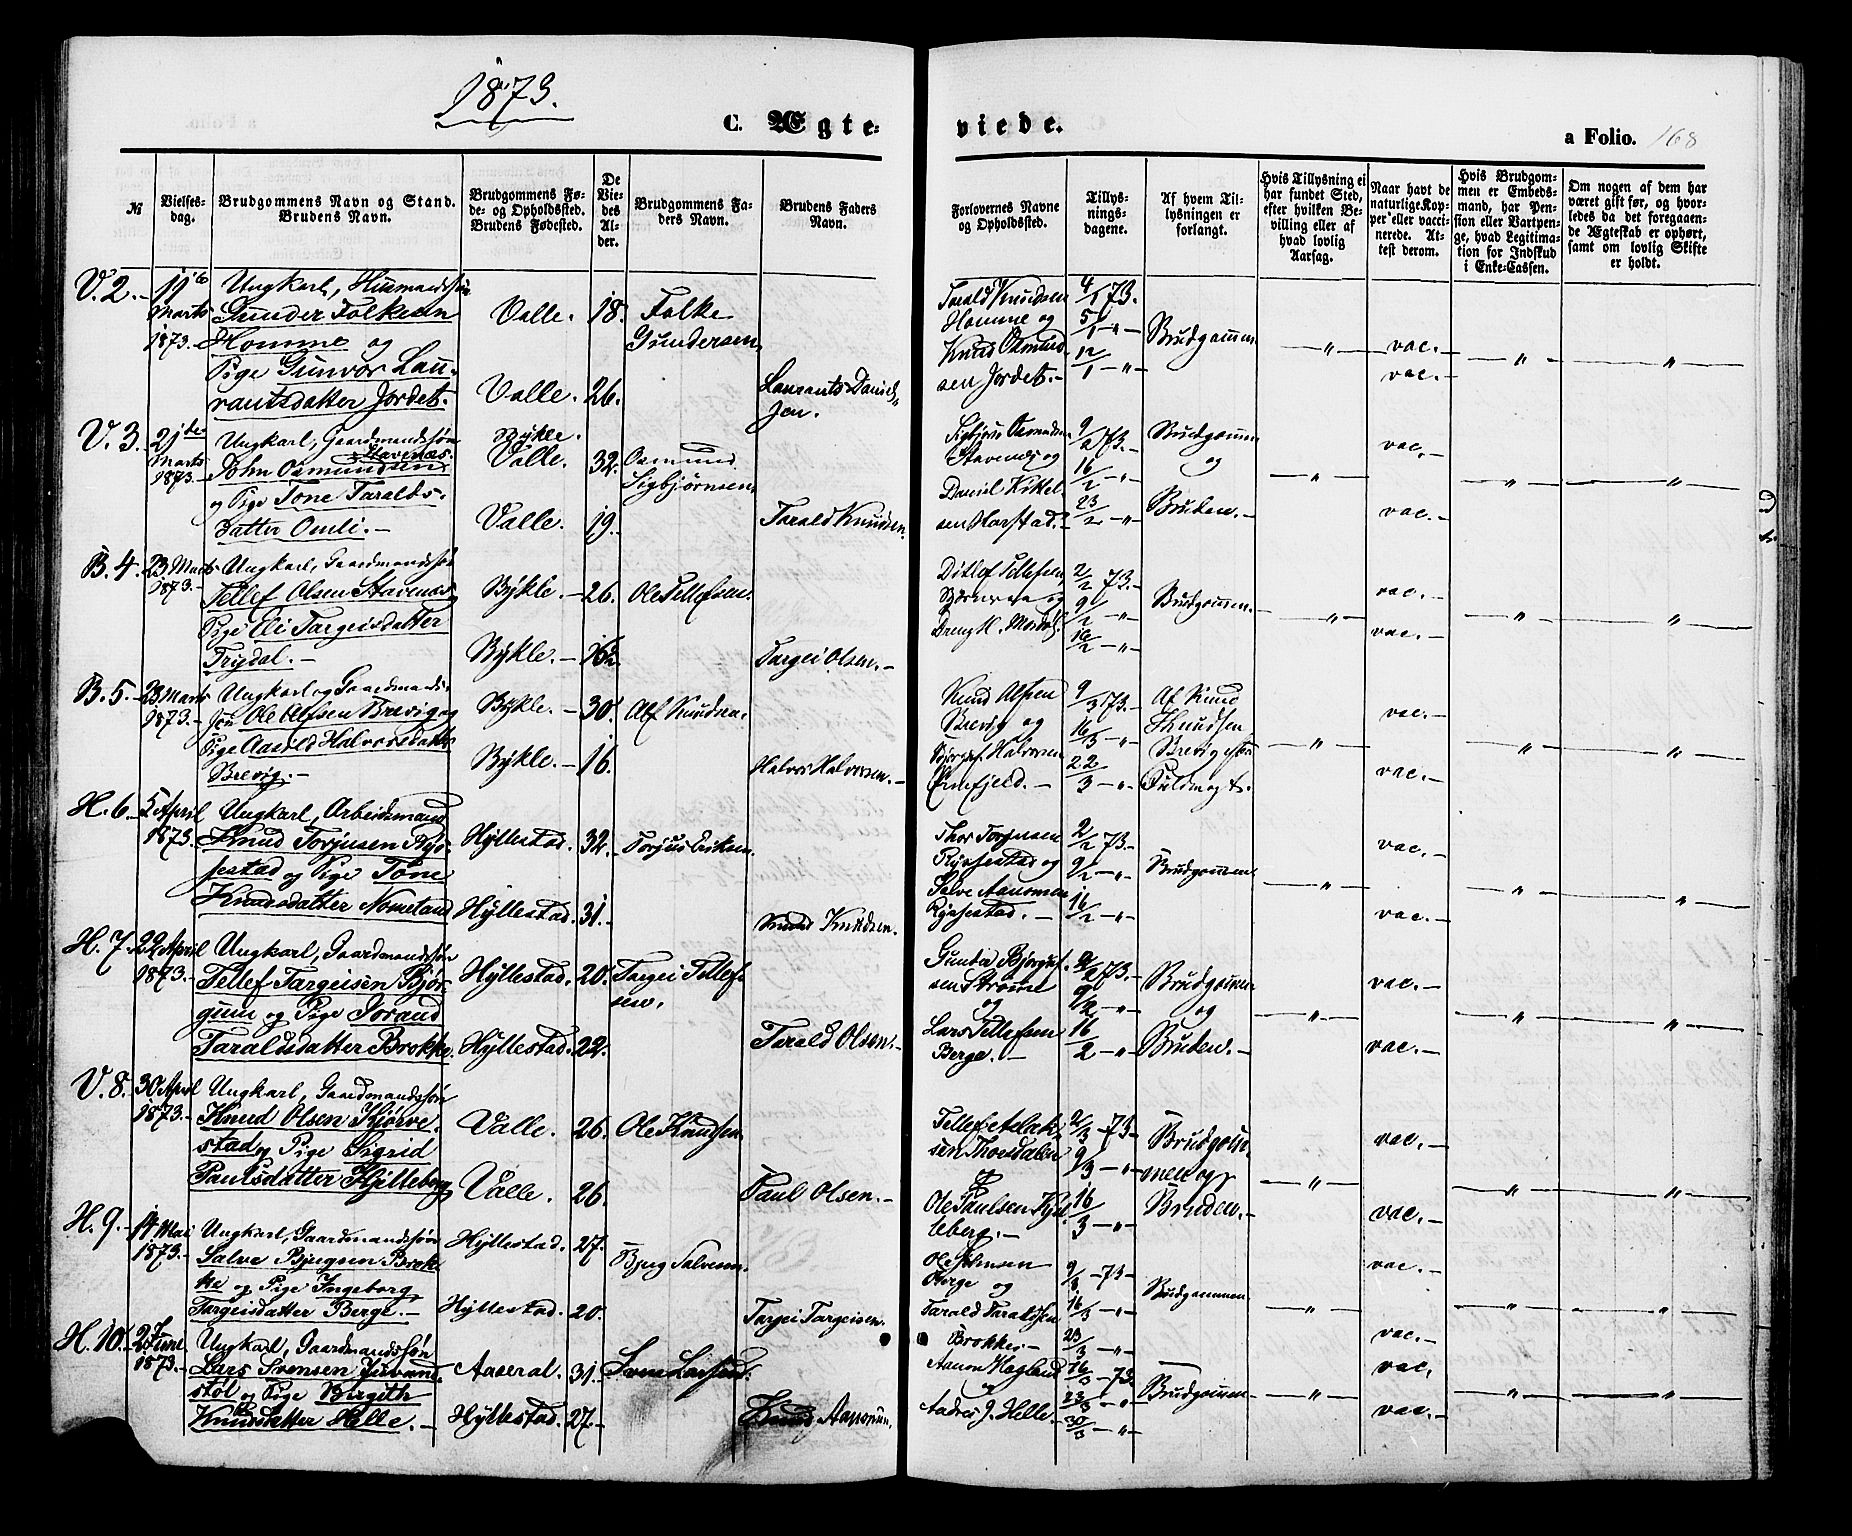 1873.
C. Ægte-
viede.
a Folio. 168
№
Vielses-
dag.
Brudgommens Navn og Stand.
Brudens Navn.
Brudgommens Fø-
de- og Opholdssted.
Brudens Fødested.
De
Vie-
des
Al-
der.
Brudgommens Fa-
ders Navn.
Brudens Faders
Navn.
Forlovernes Navne
og Opholdssted.
Tillys-
nings-
dagene.
Af hvem Til-
lysningen er
forlangt.
Hvis Tillysning ei
har fundet Sted,
efter hvilken Be-
villing eller af
hvad lovlig
Aarsag.
Naar havt de
naturlige Kop-
per eller vacci-
nerede. At-
test derom.
Hvis Brudgom-
men er Embeds-
mand, har Pen-
sion eller Vartpen-
ge, hvad Legitima-
tion for Indskud
i Enke-Cassen.
Om nogen af dem har
været gift før, og hvor-
ledes da det foregaaen-
de Ægteskab er ophørt,
samt om lovlig Skifte
er holdt.
V. 2.
11te
Marts
1873.
Ungkarl, Husmandssøn
Gunder Folkesen
Homme og
Pige Gunvor Lau-
rantsdatter Jordet.
Valle. 18. Folke
Gundersen.
Valle. 26.
Laurants Daniel-
sen.
Tarald Knudsen
Homme og
Knud Osmund-
sen Jordet.
4/1 73.
5/1 - " -
12/1 - "
Brudgommen
- " - vac. - " - "
vac.
V. 3.
21de
Marts
1873.
Ungkarl, Gaardmandssøn
Stavenæs.
John Osmundsen
og Pige Tone Taralds-
datter Omli.
Bykle.
Valle. 32. Osmund
Sigbjørnsen.
Valle. 19. Tarald Knudsen.
Sigbjørn Osmundsen
Stavenes og
Daniel Kittel-
sen Harstad.
9/2 73.
16/2
23/2 - "
Brudgommen
og
Bruden.
- " - vac. - " - "
vac.
B. 4. 23 Marts
1873.
Ungkarl, Gaardmandssøn
Tellef Olsen Stavenæs
Pige Eli Targeisdatter
Trydal.
Bykle. 26. Ole Tellefsen.
Bykle. 16½. Targei Olsen.
Ditlof Tellefsen
og
Dreng H.
2/2 73.
9/2 - "
16/2 - "
Brudgommen.
- " - vac. - " - "
vac.
B. 5. 28 Marts
1873.
Ungkarl og Gaardmands-
søn Ole Alfsen Brevig og
Pige Aasold Halvorsdatter
Brevig.
Bykle. 30. Alf Knudsen.
Bykle. 16.
Halvor Halvorsen.
Knud Alfsen
Brevig og
Bjørguf Halvorsen
Ørnefjeld.
9/3 73.
16/3 - "
22/3 - "
Af Knud
Knudsen
Brevig efter
Fuldmagt.
- " - vac. - " - "
vac.
H. 6. 5 April
1873.
Ungkarl, Arbeidsmand
Knud Torjusen Ryg-
sestad og Pige Tone
Knudsdatter Nomeland
Hyllestad. 32. Torjus Eriksen.
Hyllestad. 31.
Knud Knudsen.
Thor Torjusen
Rysestad og
Salve Aanonsen
Rysestad.
2/2 73.
9/2 - "
16/2 - "
Brudgommen
- " - vac. - " - "
vac.
H. 7. 22 April
1873.
Ungkarl, Gaardmandssøn
Tellef Targeisen Bjør-
gum og Pige Jorand
Taraldsdatter Brokke.
Hyllestad. 20. Targei Tellef-
sen.
Hyllestad. 22. Tarald Olsen.
Gunder Bjørguf-
sen Strømme
og
Lars Tellefsen
Berge.
2/2 73.
9/2 - "
16/2 - "
Brudgommen
og
Bruden.
- " - vac. - " - "
vac.
V. 8. 30 April
1873.
Ungkarl, Gaardmandssøn
Knud Olsen Kjørve-
stad og Pige Sigrid
Paulsdatter Hjelleberg
Valle. 26. Ole Knudsen
Valle. 26. Paul Olsen.
Tellef Aslak-
sen Thorsdalen
og
Ole Paulsen Hjel-
leberg.
2/3 73.
9/3 - "
16/3 - "
Brudgom-
men og
Bruden.
- " - vac. - " - "
vac.
H. 9. 14 Mai
1873.
Ungkarl, Gaardmandssøn
Salve Bjugsen Brok-
ke og Pige Ingeborg
Targeisdatter Berge.
Hyllestad. 27. Bjug Salvesen
Hyllestad. 20. Targei Targeisen.
Ole
Berge og
Tarald Taraldsen
Brokke.
9/3 - 73
16/3 - "
23/3 - "
Brudgommen
- " - vac. - " - "
vac.
H. 10. 2 Juni
1873.
Ungkarl, Gaardmandssøn
Lars Svensen Juvand-
støl og Pige Birgith
Knudsdatter Helle.
Aaseral. 31. Sven Larsen.
Hyllestad. 27. Knud Aanonsen.
Aanon Hagland
og
Andres J. Helle.
16/3 - 73.
23/3 - "
30/3 - "
Brudgommen
- " - vac. - " - "
vac.